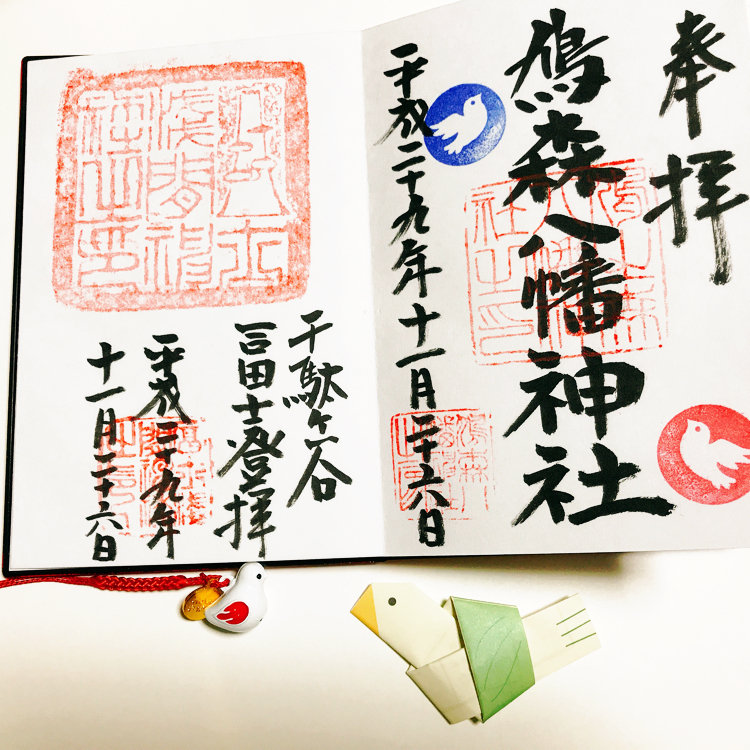 奉拝
鳩森八幡神社
平成二十九年十一月二十六日
千駄ヶ谷
冨士登拝
平成二十九年
十一月二十六日